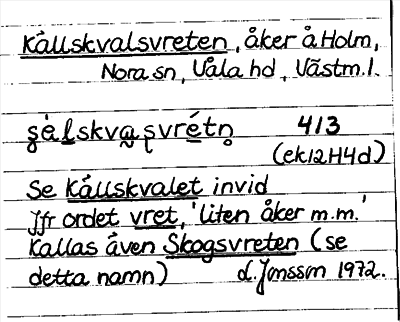 Källskvalsvreten, åker å Holm,
Nora sn, Våla hd, Västm. l.
413
(ek 12H4d)
Se Källskvalet invid
Jfr ordet vret, 'liten åker m.m.'
Kallas även Skogsvreten (se
detta namn) d. Jonsson 1972.